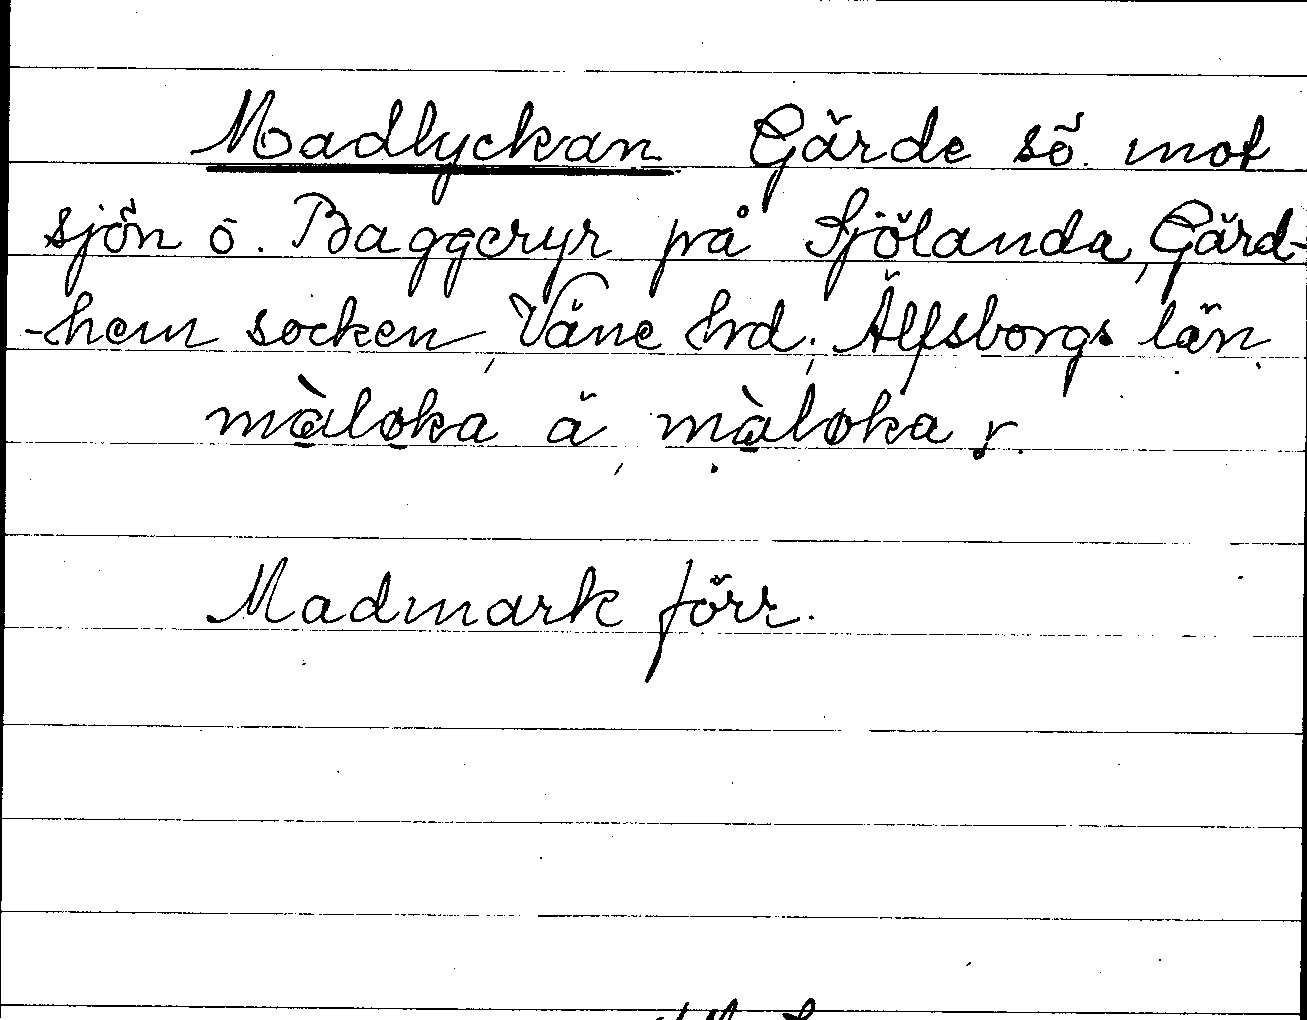 Madlyckan Gärde sö. mot
sjön ö. Baggeryr på Sjölanda, Gärd-
-hem socken, Väne hrd; Älfsborgs län.
màloka ä, màloka r.
Madmark förr.